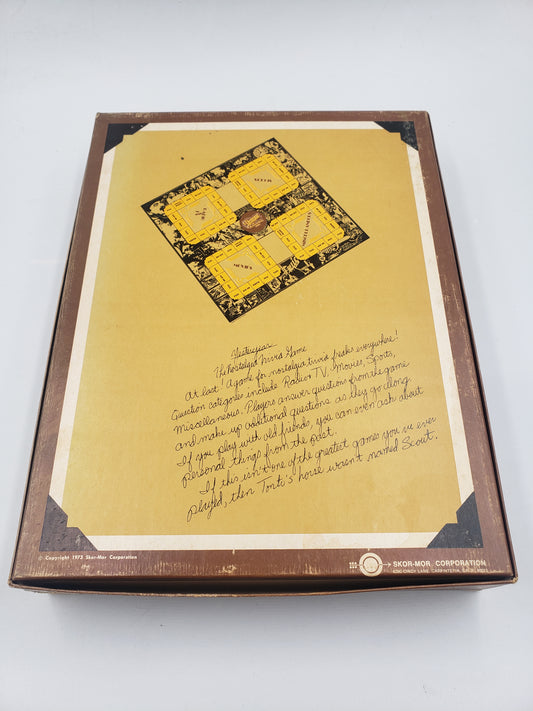 SPORTS
RADIO
TV
MOVIES
MISCELLANEOUS
Yesteryear
The Nostalgia Trivia Game
At last! A game for nostalgia trivia freaks everywhere!
Question categories include Radio & TV, Movies, Sports,
Miscellaneous. Players answer questions from the game
and make up additional questions as they go along
If you play with old friends, you can even ask about
personal things from the past.
If this isn't one of the greatest games you've ever
played, then Tonto's horse wasn't named Scout.
© Copyright 1973 Skor-Mor Corporation
SKOR-MOR CORPORATION
CARPINTERIA, CALIF.